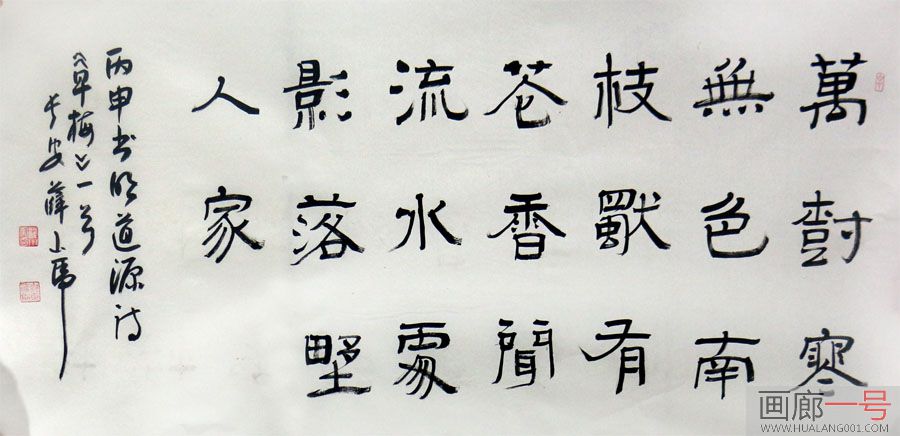 萬樹寒
無色南
枝獨有
花香聞
流水處
影落野
人家
丙申书明道源诗
《早梅》一首
长安薛
画廊一号
WWW.HUALANG001.COM